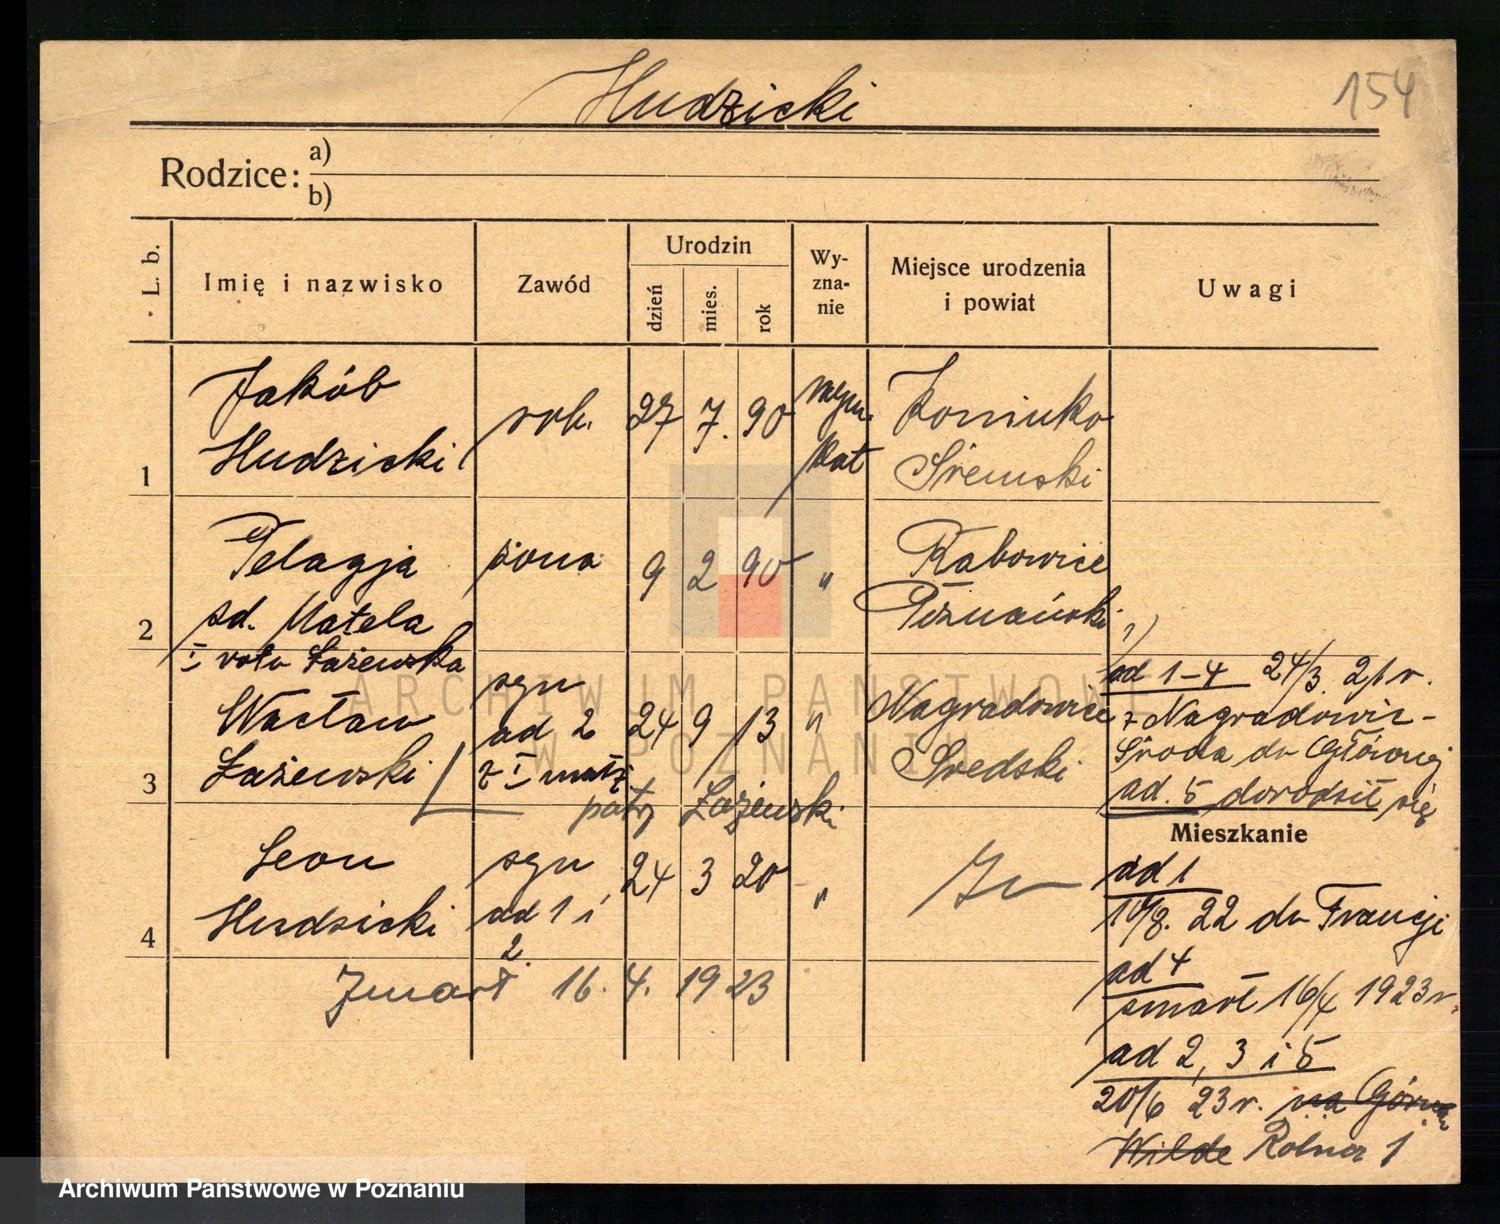 Hudzicki
154
Rodzice: a)
b)
L. b.
Imię i nazwisko
Zawód
Urodzin
dzień
mies.
rok
Wy-
zna-
nie
Miejsce urodzenia
i powiat
Uwagi
1
Jakób
Hudzicki
rob.
27 7. 90
rzym.
kat
Koninko
Śremski
2
Pelagja
zd. Matela
I voto Łażewska
żona
9 2 90
"
Rabowice
Poznański
3
Wacław
Łażewski
syn
ad 2
z I małż
24 9 13
"
Nagradowice
Średski
patrz Łażewski
ad 1–4 24/3. 21 r.
z Nagradowic-
Środa do Głównej
ad. 5 dorodził się
Mieszkanie
4
Leon
Hudzicki
syn
ad 1 i
2.
24 3 20
"
Zmarł 16. 4. 1923
ad 1
10/8. 22 do Francji
ad 4
zmarł 16/4 1923 r.
ad 2, 3 i 5
20/6 23 r. na Górna
Wilde Rolna 1
ARCHIWUM PAŃSTWOWE
W POZNANIU
Archiwum Państwowe w Poznaniu